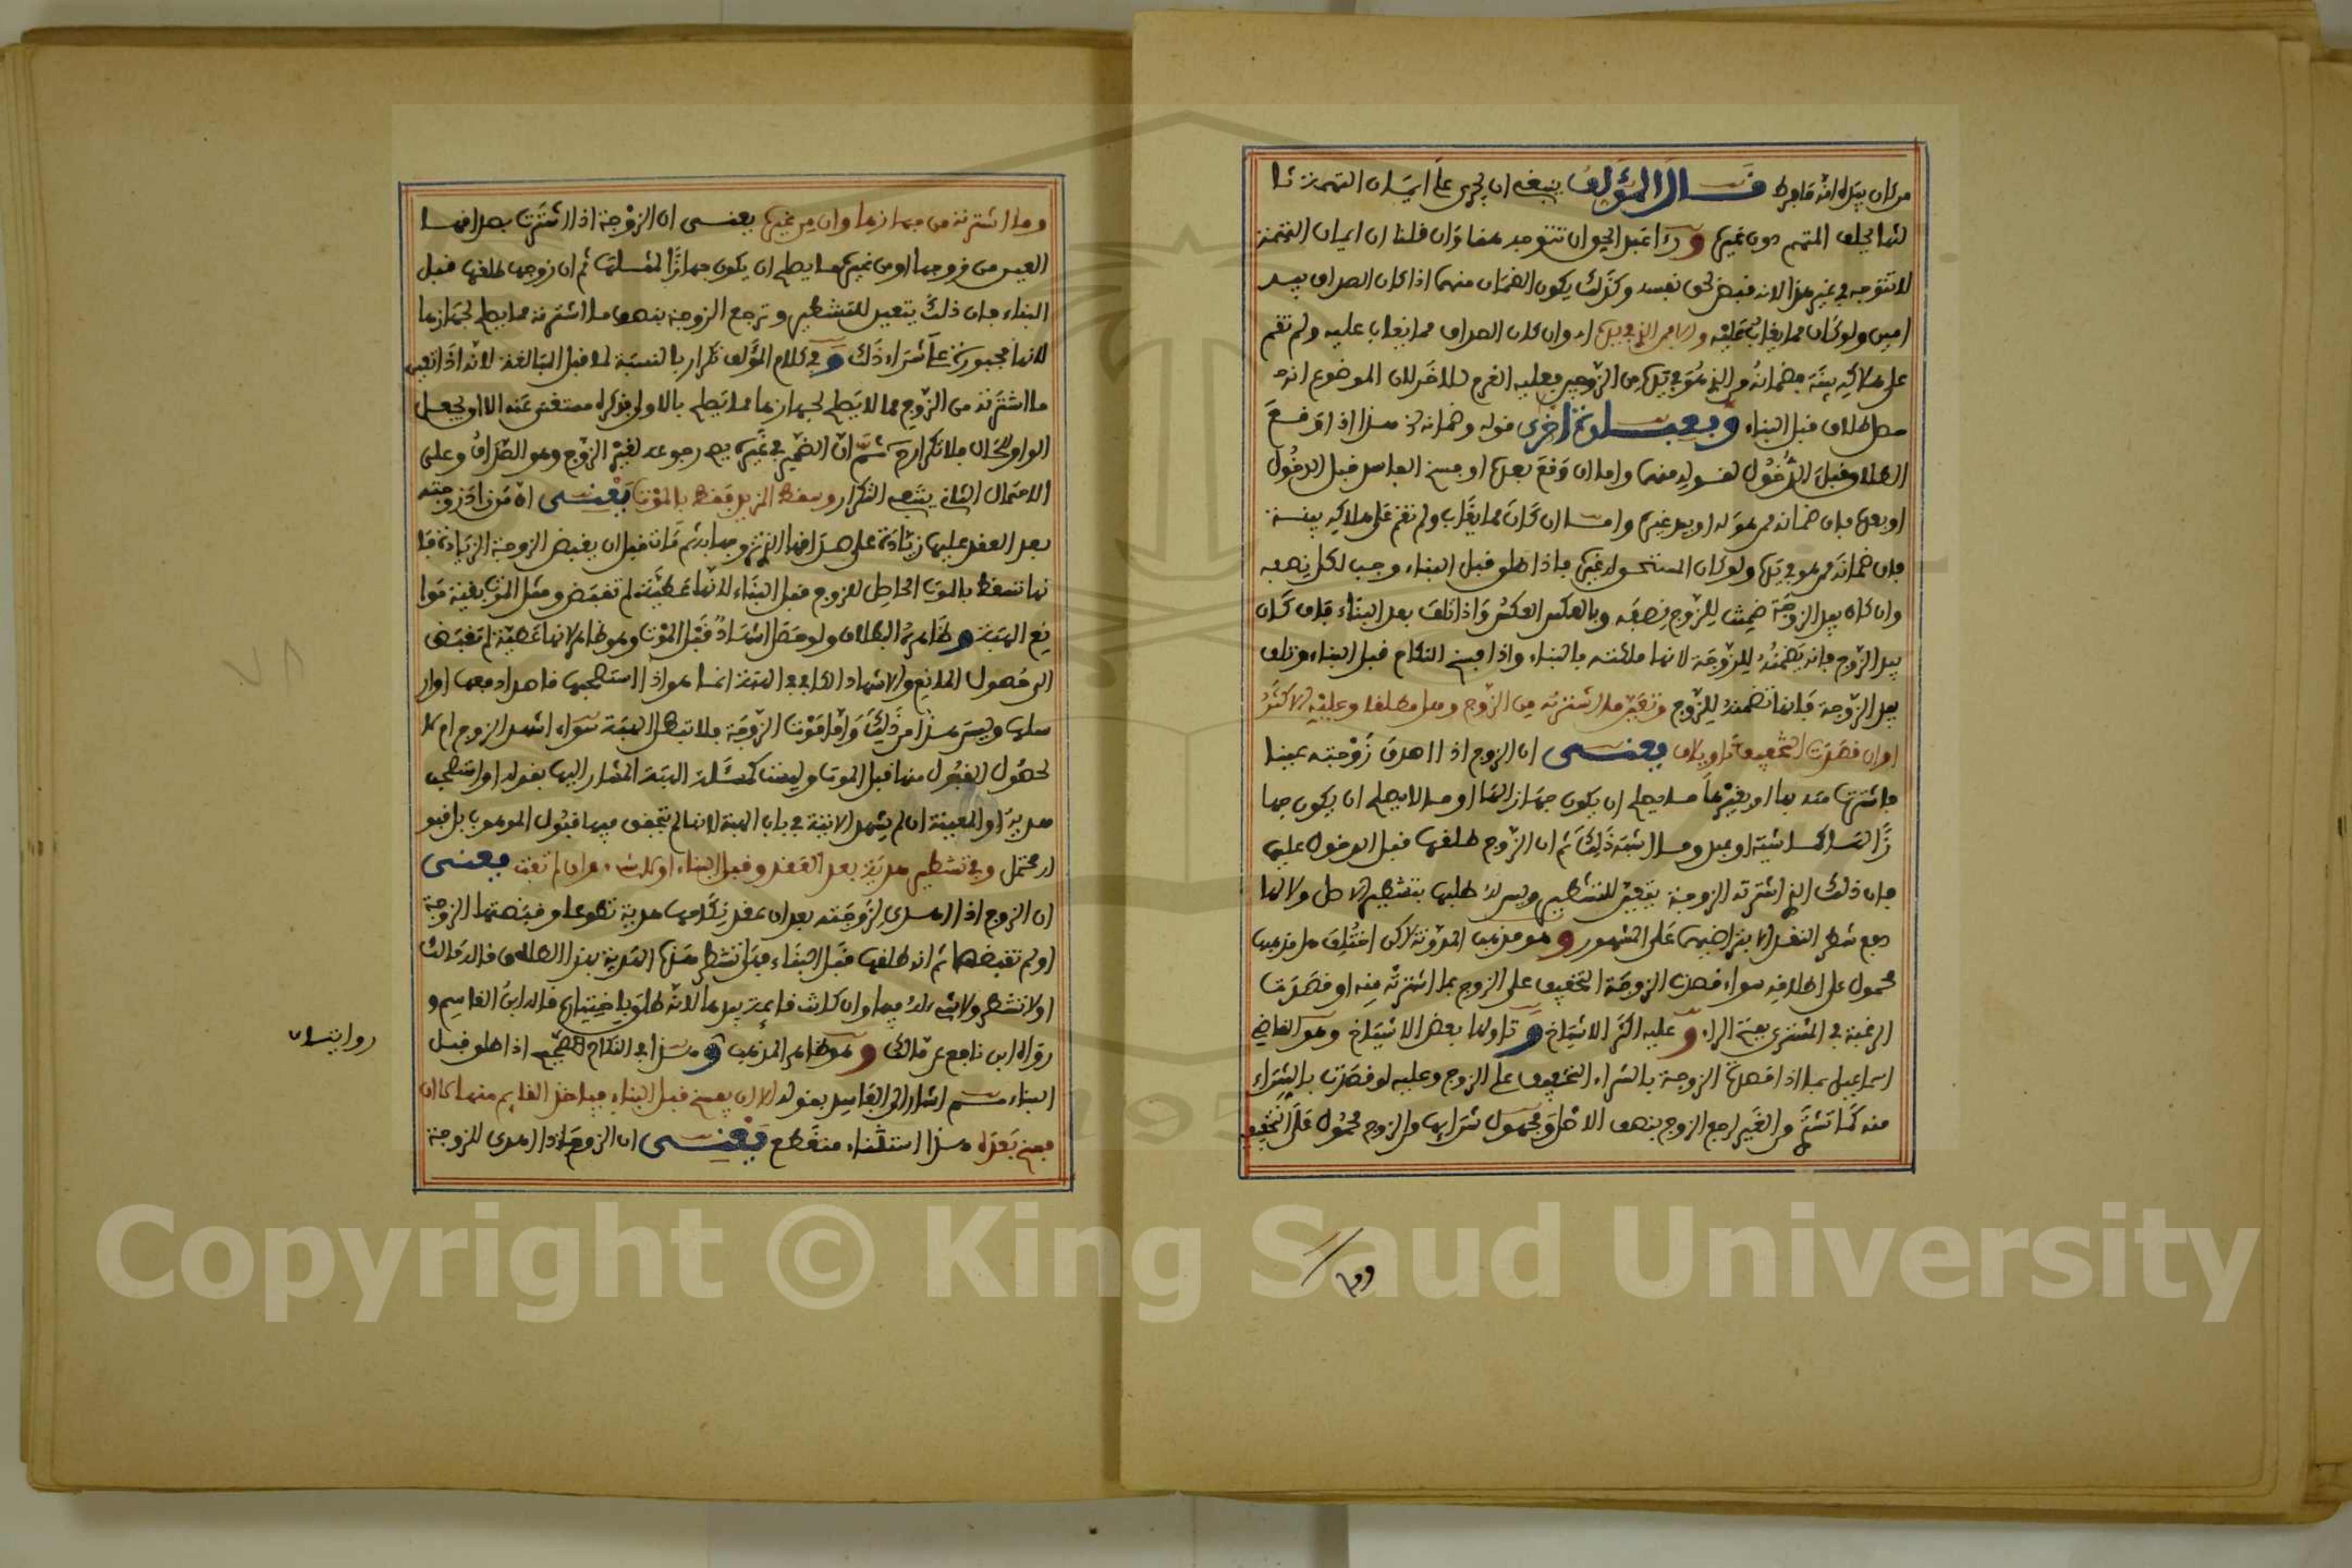 من كان بيده انه ما فرط قال المؤلف ينبغي ان يجرى على ايمان التهمة ثا
لثها يحلف المتهم دون غيره و
لا تتوجه في غير هذا لانه قبض لحق نفسه وكذلك يكون الضمان منهما اذا كان الصداق بيد
امين ولو كان مما يغاب عليه والا فمن الذي في يده اي وان كان الصداق مما يغاب عليه ولم تقم
على هلاكه بينة فضمانه من الذي هو في يده من الزوجين فعليه الغرم للاخر لان الموضوع انه
حصل طلاق قبل البناء وبعبارة اخرى قوله وضمانه الخ هذا اذا وقع
الطلاق قبل الدخول لقوله منهما واما ان وقع بعده او فسخ الفاسد قبل الدخول
او بعده فان ضمانه ممن هو له او بيد غيره واما ان كان مما يغاب ولم تقم على هلاكه بينة
فان ضمانه ممن هو في يده ولو كان المستحق له غيره فاذا طلق قبل البناء وجب لكل نصفه
وان كان بيد الزوجة ضمنت للزوج نصفه وبالعكس العكس واذا تلف بعد البناء فان كان
بيد الزوج فانه يضمنه للزوجة لانها ملكته بالبناء واذا فسخ النكاح قبل البناء وتلف
بيد الزوجة فانها تضمنه للزوج وتعين ما اشترته من الزوج وهل مطلقا وعليه الاكثر
او ان قصدت التخفيف تاويلان يعني ان الزوج اذا اصدق زوجته عينا
فاشترت منه بها او بغيرها ما يصلح ان يكون جهازا لها او ما لا يصلح ان يكون جها
زا لها كماشية او عبد وما اشبه ذلك ثم ان الزوج طلقها قبل الدخول عليها
فان ذلك الذي اشترته الزوجة يتعين للتشطير وليس له طلبها بتشطير الاصل ولا لها
دفع شطر النقد الا برضاهما على المشهور وهو مذهب المدونة لاكن اختلف هل مذهبها
محمول على اطلاقه سواء قصدت الزوجة التخفيف على الزوج بما اشترته منه او قصدت
الرغبة في المشترى بفتح الراء وعليه اكثر الاشياخ وتاولها بعض الاشياخ وهو القاضي
اسماعيل بما اذا قصدت الزوجة بالشراء التخفيف على الزوج وعليه لو قصدت بالشراء
منه كما تشتري من الغير لرجع الزوج بنصف الاصل ومجهول شرائها من الزوج محمول على التخفيف
وما اشترته من جهازها وان من غيره يعني ان الزوجة اذا اشترت بصداقها
العين من زوجها او من غيره ما يصلح ان يكون جهازا لمثلها ثم ان زوجها طلقها قبل
البناء فان ذلك يتعين للتشطير وترجع الزوجة بنصف ما اشترته مما يصلح لجهازها
لانها مجبورة على شراء ذلك وفي كلام المؤلف تكرار بالنسبة لما قبل المبالغة لانه اذا تعين
ما اشترته من الزوج مما لا يصلح لجهازها مما يصلح بالاولى فذكره مستغنى عنه الا ان يجعل
الواو للحال فلا تكرار ثم ان الضمير في غيره يصح رجوعه لغير الزوج وهو الصداق وعلى
الاحتمال الثاني ينتفي التكرار وسقط المزيد فقط بالموت يعني ان من زاد زوجته
بعد العقد عليها زيادة على صداقها الذي تزوجها به ثم مات قبل ان تقبض الزوجة الزيادة فا
نها تسقط بالموت الحاصل للزوج قبل البناء لانها عطية لم تقبض ومثل الموت بقية موا
نع الهبة وظاهره البطلان ولو حصل اشهاد قبل الموت وهو ظاهر لانها عطية لم تقبض
الى حصول المانع والاشهاد الكافي في الهبة انما هو اذا استصحبها قاصدا دفعها او ار
سلها وليس هذا من ذلك واما موت الزوجة فلا تبطل الهبة سواء اشهد الزوج ام لا
لحصول القبول منها قبل الموت وليست كمسئلة الهبة المشار اليها بقوله او استصحب
هدية او المعينة ان لم يشهد الاتية في باب الهبة لانها لم يتحقق فيها قبول الموهوب بل هو
امر محتمل وفي تشطير هدية بعد العقد وقبل البناء او لا شيء له وان لم تفت يعني
ان الزوج اذا اهدى لزوجته بعد ان عقد نكاحها هدية تطوعا وقبضتها الزوجة
او لم تقبضها ثم انه طلقها قبل البناء فهل تتشطر هذه الهدية بهذا الطلاق قاله مالك
او لا تتشطر ولا شيء له فيها وان كانت قائمة بيدها لانه طلق باختياره قاله ابن القاسم و
رواه ابن نافع عن مالك وهو ظاهر المذهب وهذا في النكاح الصحيح اذا طلق قبل
البناء ثم اشار الى الفاسد بقوله الا ان يفسخ قبل البناء فياخذ القائم منها لا ان
فسخ بعده هذا استثناء منقطع يعني ان الزوج اذا اهدى للزوجة
روايتان
Copyright © King Saud University